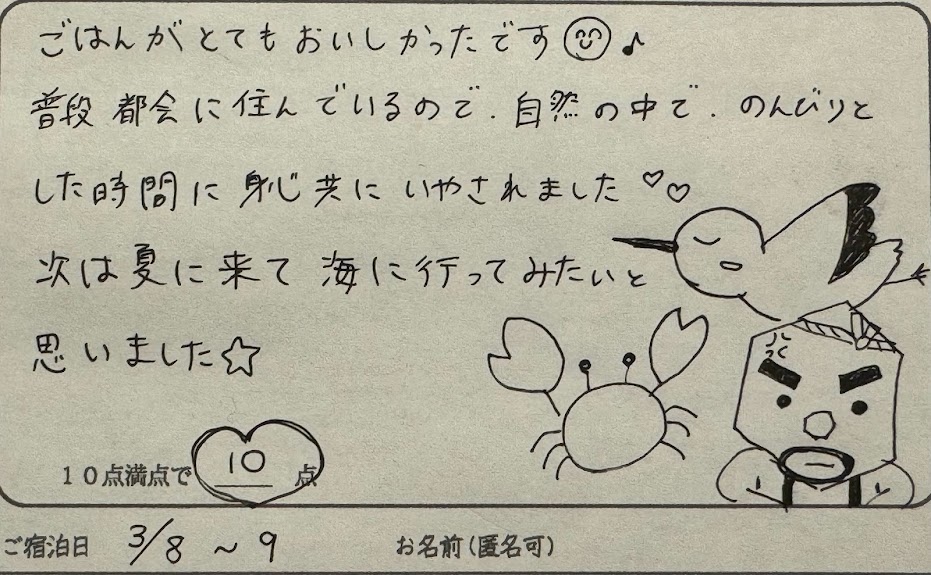 ごはんがとてもおいしかったです😊♪
普段都会に住んでいるので.自然の中で.のんびりと
した時間に身心共にいやされました♡♡
次は夏に来て海に行ってみたいと
思いました☆
10点満点で 10 点
ご宿泊日 3/8 ~ 9 お名前(匿名可)